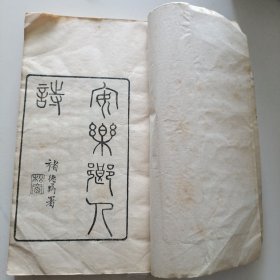 安樂鄉人
詩
褚德彝署